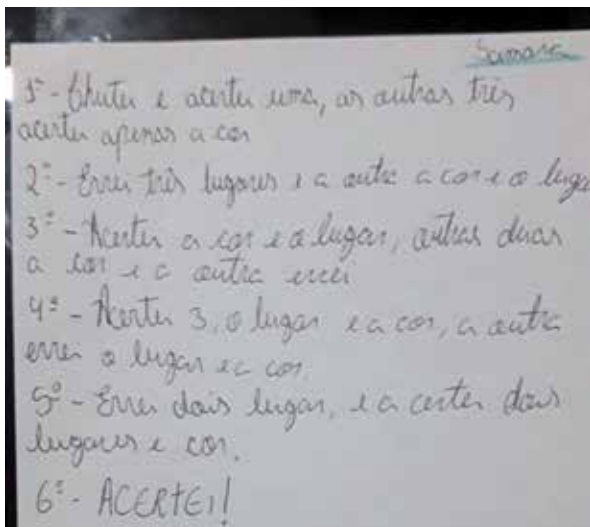 Samara
1º - Chutei e acertei uma, as outras três
acertei apenas a cor
2º - Errei três lugares e a outra a cor e o lugar
3º - Acertei a cor e o lugar, outras duas
a cor e a outra errei
4º - Acertei 3, o lugar e a cor, a outra
errei o lugar e a cor.
5º - Errei dois lugar, e a certei dois
lugares e cor.
6º - ACERTEI!